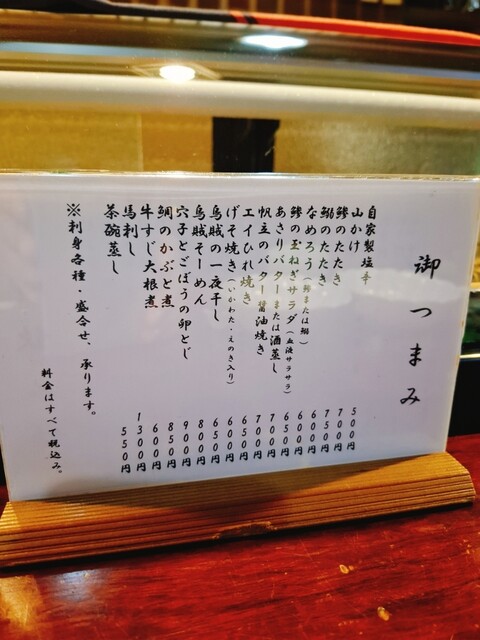 御つまみ
自家製塩辛 500円
山かけ 700円
鯵のたたき 750円
鰯のたたき 600円
なめろう(鯵または鰯) 600円
鯵の玉ねぎサラダ(血液サラサラ) 650円
あさりバターまたは酒蒸し 700円
帆立のバター醤油焼き 700円
エイひれ焼き 650円
げそ焼き(いかわた・えのき入り) 600円
烏賊の一夜干し 650円
烏賊そーめん 800円
穴子とごぼうの卵とじ 900円
鯛のかぶと煮 850円
牛すじ大根煮 600円
馬刺し 1300円
茶碗蒸し 550円
※刺身各種・盛合せ、承ります。
料金はすべて税込み。